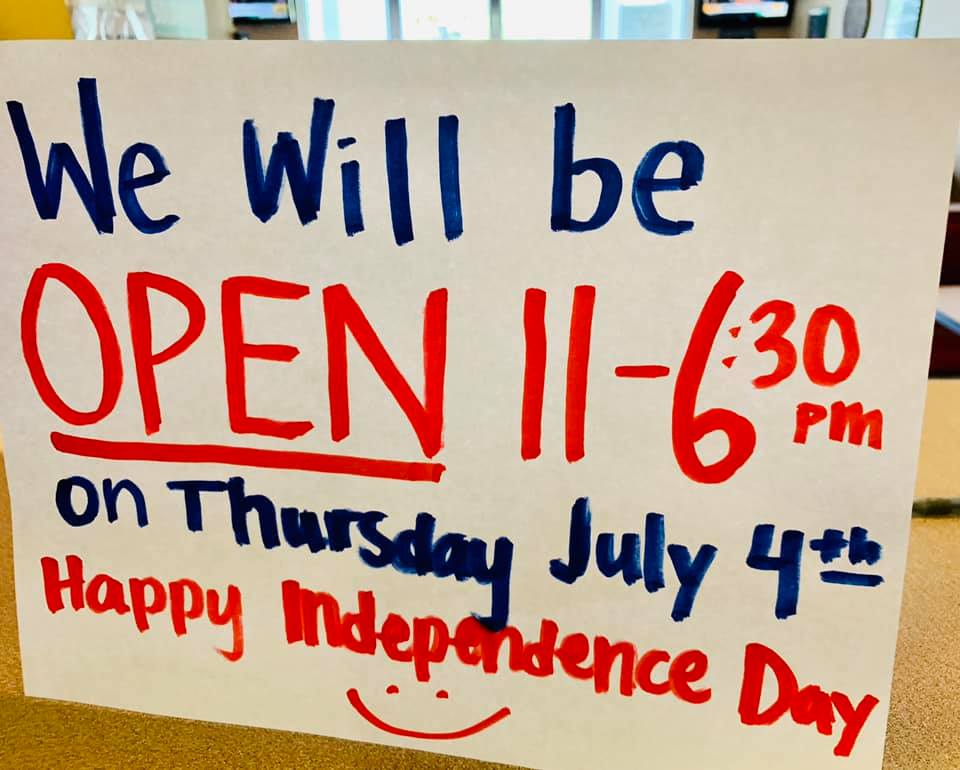 We Will be
OPEN 11-6:30 pm
on Thursday July 4th
Happy Independence Day